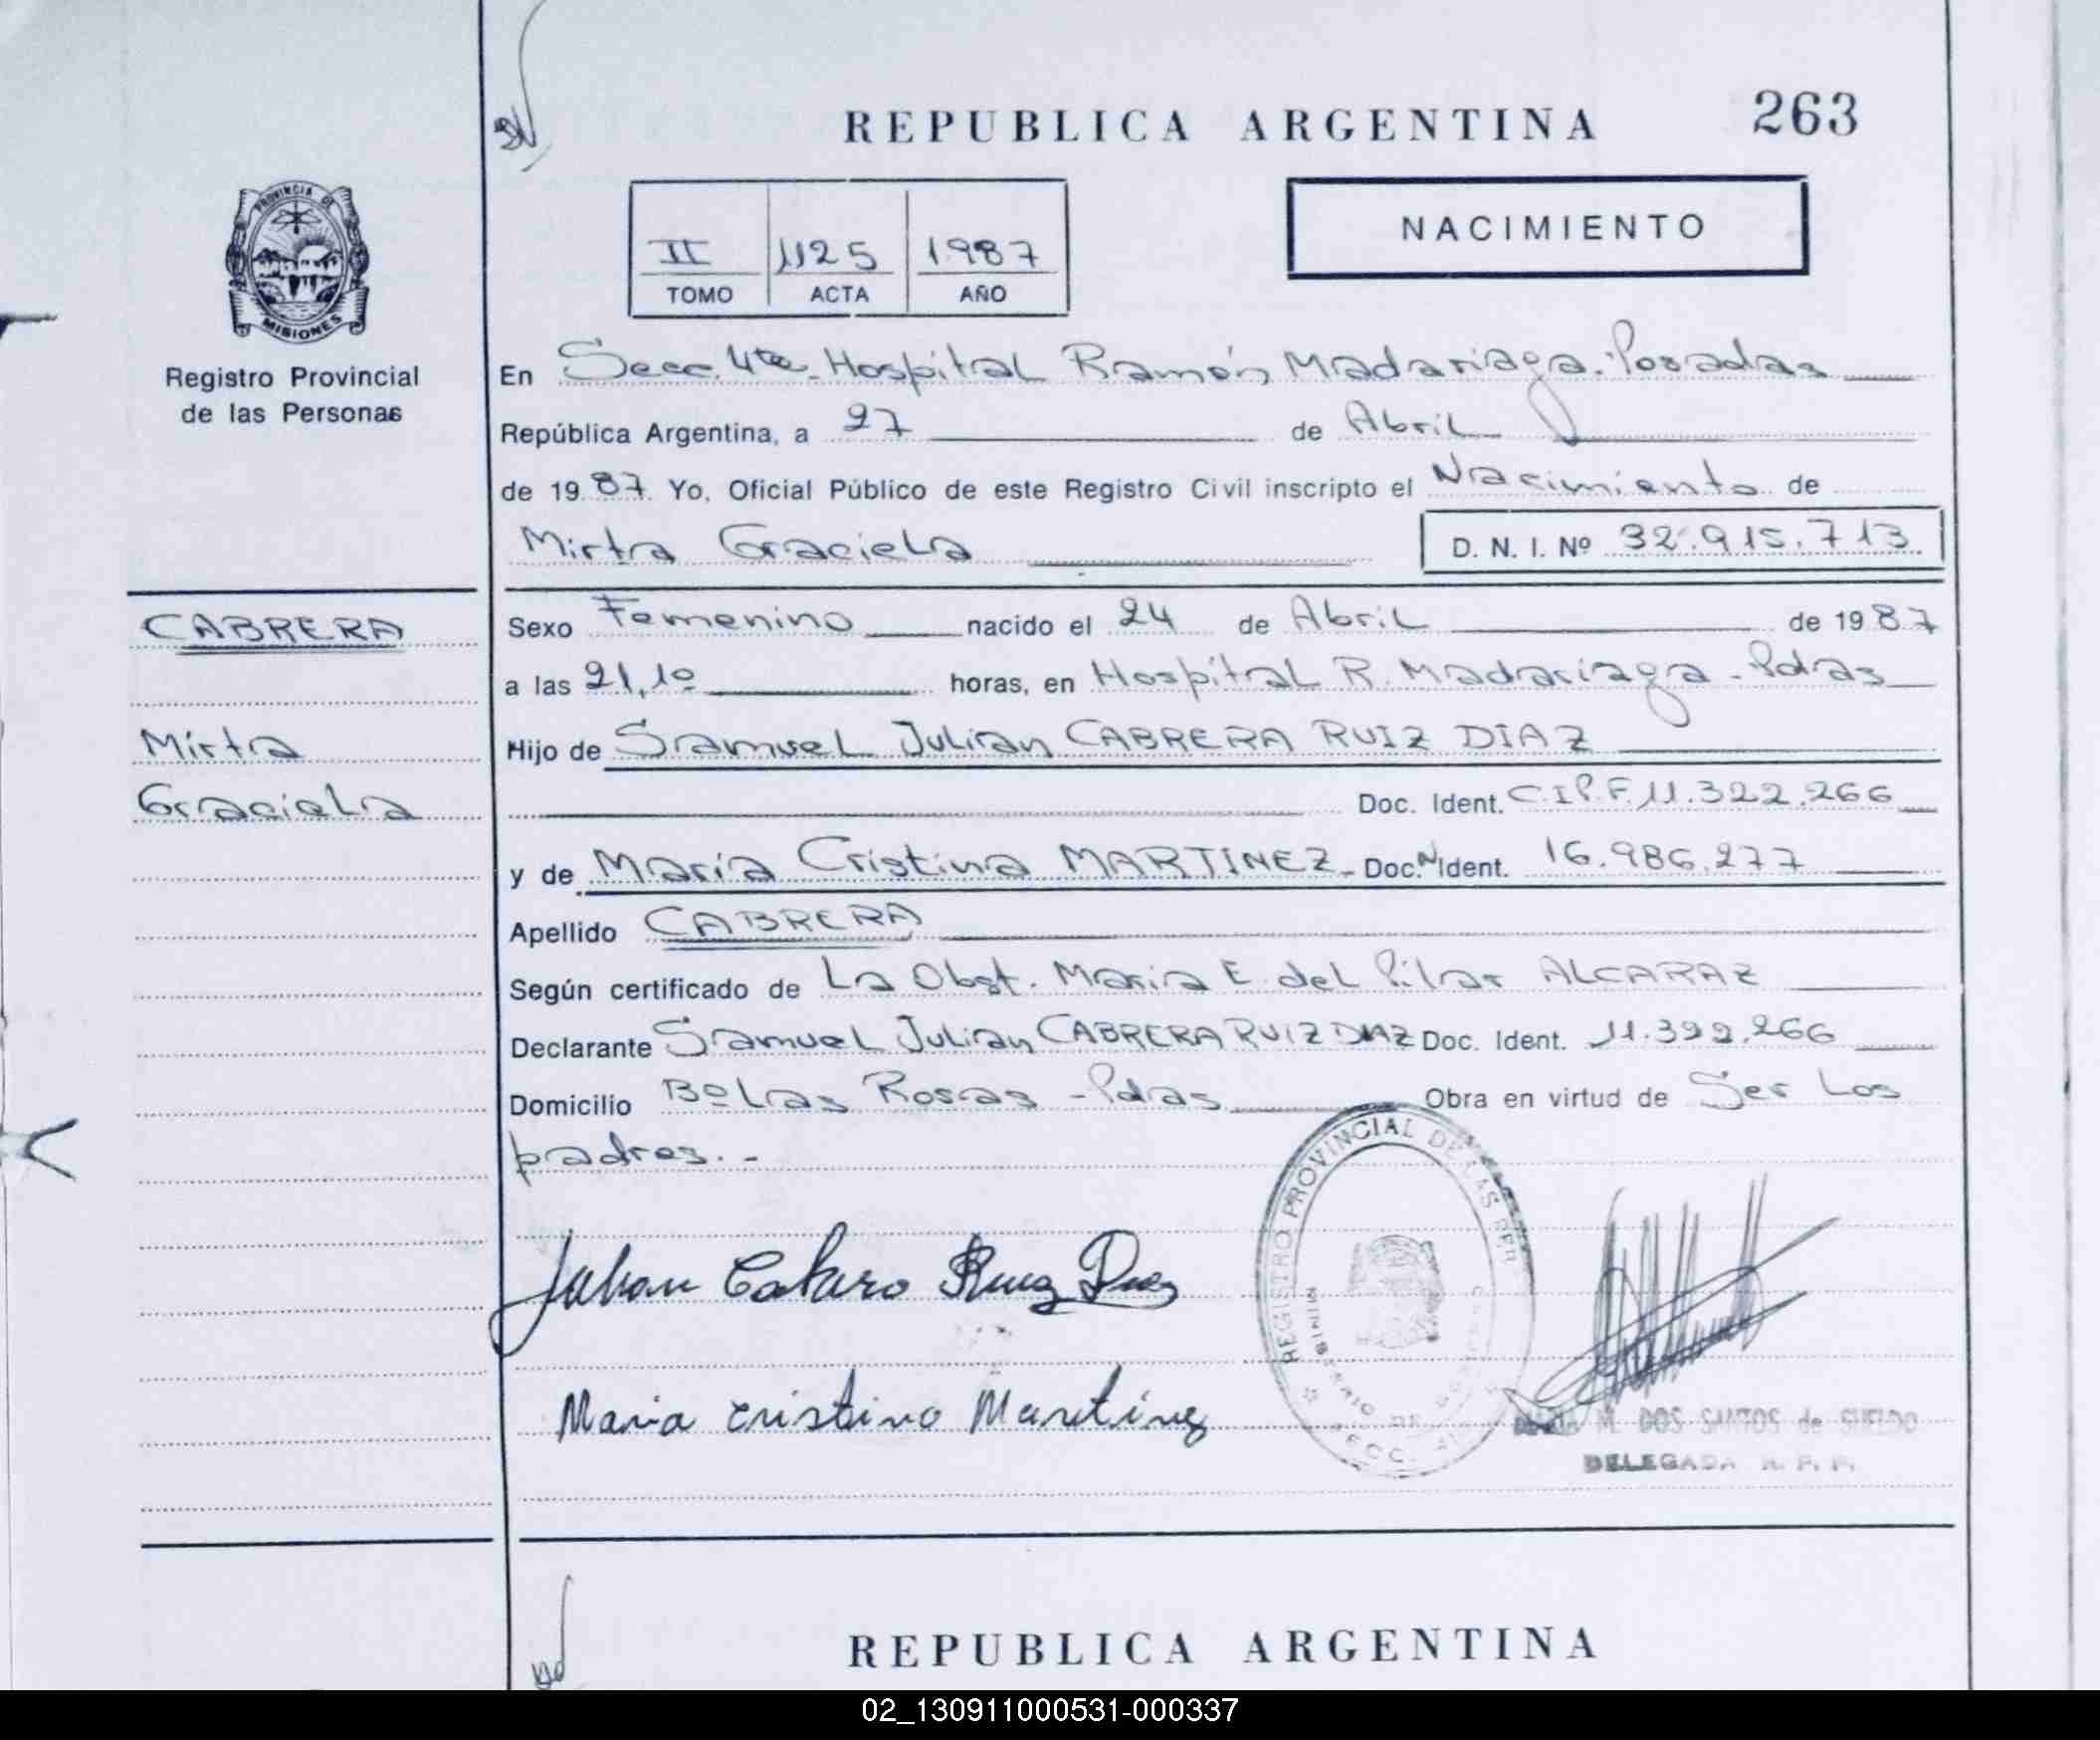 REPUBLICA ARGENTINA 263
PROVINCIA DE
MISIONES
Registro Provincial
de las Personas
II 1125 1987
TOMO ACTA AÑO
NACIMIENTO
En Secc. 4ta. Hospital Ramón Madariaga. Posadas
República Argentina, a 27 de Abril
de 1987 Yo, Oficial Público de este Registro Civil inscripto el Nacimiento de
Mirta Graciela D. N. I. Nº 32.915.713
CABRERA
Mirta
Graciela
Sexo Femenino nacido el 24 de Abril de 1987
a las 21,10 horas, en Hospital R. Madariaga - Pdas
Hijo de Samuel Julian CABRERA RUIZ DIAZ
Doc. Ident. C.I.P.F. 11.322.266
y de María Cristina MARTINEZ - Doc. N Ident. 16.986.277
Apellido CABRERA
Según certificado de La Obst. Maria E. del Pilar ALCARAZ
Declarante Samuel Julian CABRERA RUIZ DIAZ Doc. Ident. 11.322.266
Domicilio Bº Las Rosas - Pdas Obra en virtud de Ser Los
padres.-
REGISTRO PROVINCIAL DE LAS PER
MINISTERIO DE
SECC.
Julian Cabrera Ruiz Diaz
Maria cristina Martinez
M. DOS SANTOS de SUELDO
DELEGADA R. P. P.
REPUBLICA ARGENTINA
02_130911000531-000337